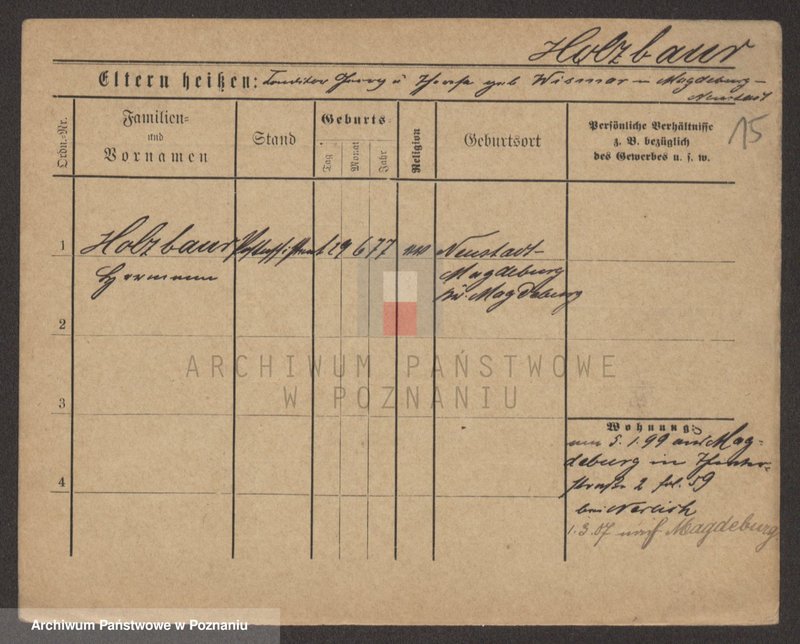 Holzbaur
Eltern heißen: Conditor Georg u Therese geb Wismar in Magdeburg-
Neustadt
Ordn.-Nr.
Familien-
und
Vornamen
Stand
Geburts
Tag
Monat
Jahr
Religion
Geburtsort
Persönliche Verhältnisse
z. B. bezüglich
des Gewerbes u. s. w.
15
1
Holzbaur
Hermann
Postassistent
29 6 77
Neustadt-
Magdeburg
Magdeburg
2
3
4
ARCHIWUM PAŃSTWOWE
W POZNANIU
Wohnung:
5.1.99 aus Mag-
deburg in Theater-
straße 2 fol. 59
bei
1.3.07 nach Magdeburg
Archiwum Państwowe w Poznaniu